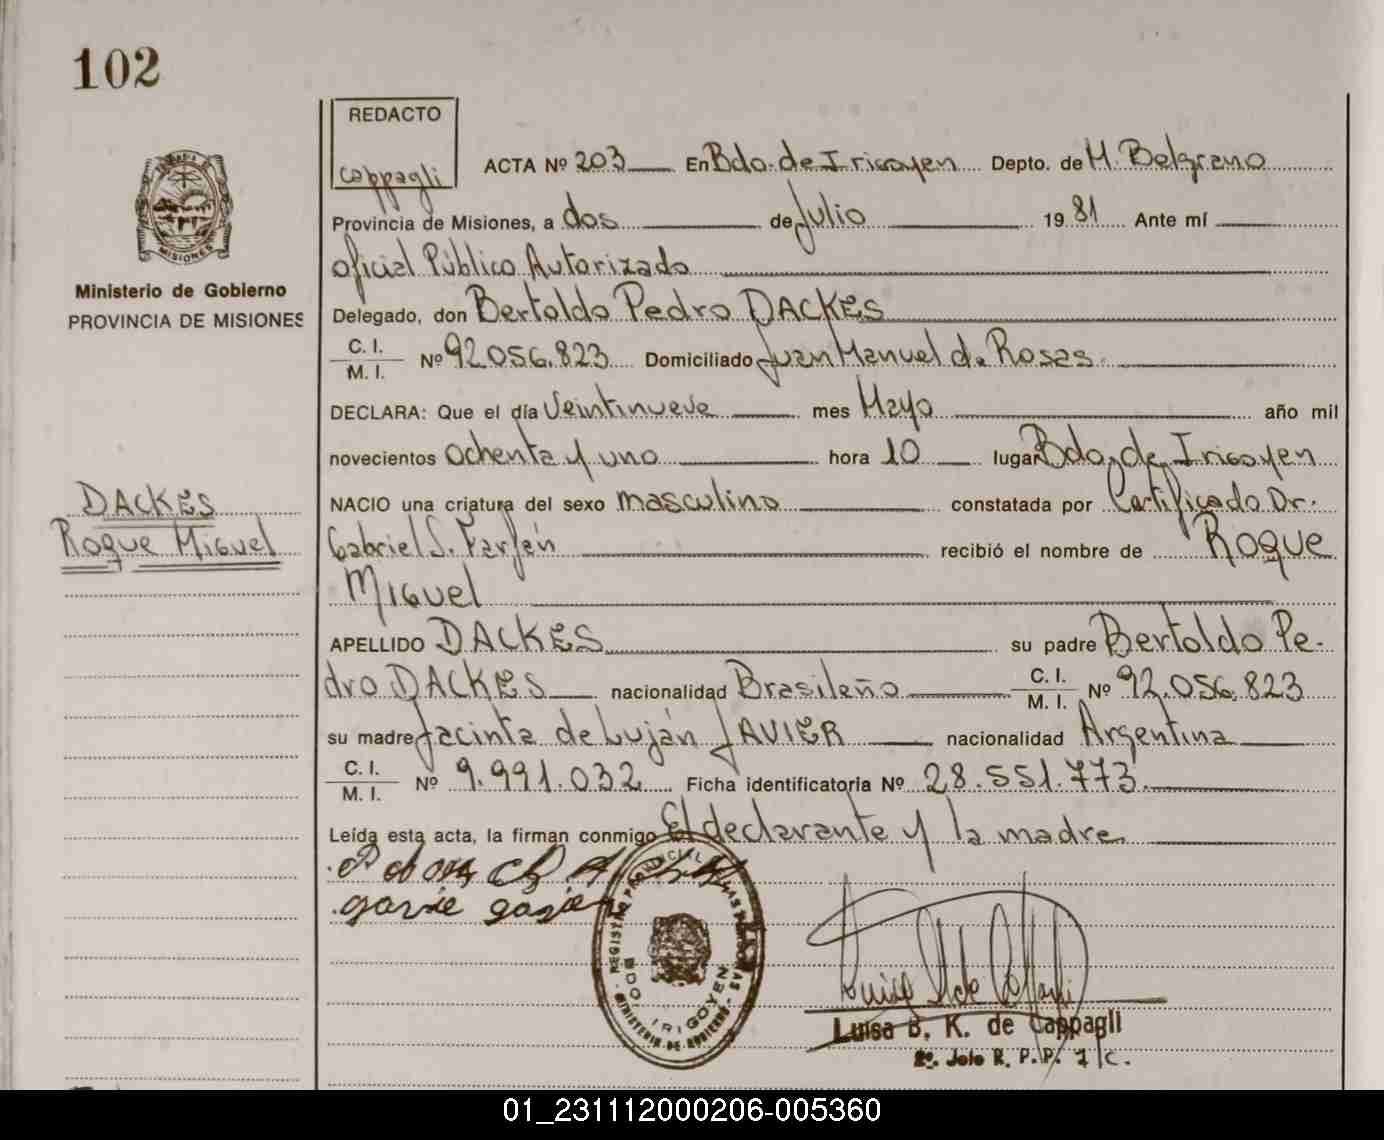 102
REDACTO
Cappagli
ACTA Nº 203 En Bdo. de Irigoyen Depto. de M. Belgrano
MISIONES
Provincia de Misiones, a dos de Julio 1981 Ante mí
Oficial Público Autorizado
Ministerio de Gobierno
PROVINCIA DE MISIONES
Delegado, don Bertoldo Pedro DACKES
C. I.
M. I. Nº 92.056.823 Domiciliado Juan Manuel de Rosas.
DECLARA: Que el día Veintinueve mes Mayo año mil
novecientos ochenta y uno hora 10 lugar Bdo. de Irigoyen
DACKES
Roque Miguel
NACIO una criatura del sexo masculino constatada por Certificado Dr.
Gabriel S. Farfán recibió el nombre de Roque
Miguel
APELLIDO DACKES su padre Bertoldo Pe-
dro DACKES nacionalidad Brasileño C. I.
M. I. Nº 92.056.823
su madre Jacinta de Luján JAVIER nacionalidad Argentina
C. I.
M. I. Nº 9.991.032 Ficha identificatoria Nº 28.551.773
Leída esta acta, la firman conmigo El declarante y la madre
REGISTRO PROVINCIAL DE LAS PERSONAS
BDO. IRIGOYEN
MINISTERIO DE GOBIERNO
Luisa B. K. de Cappagli
2º. Jefe R. P. P. I/C.
01_231112000206-005360